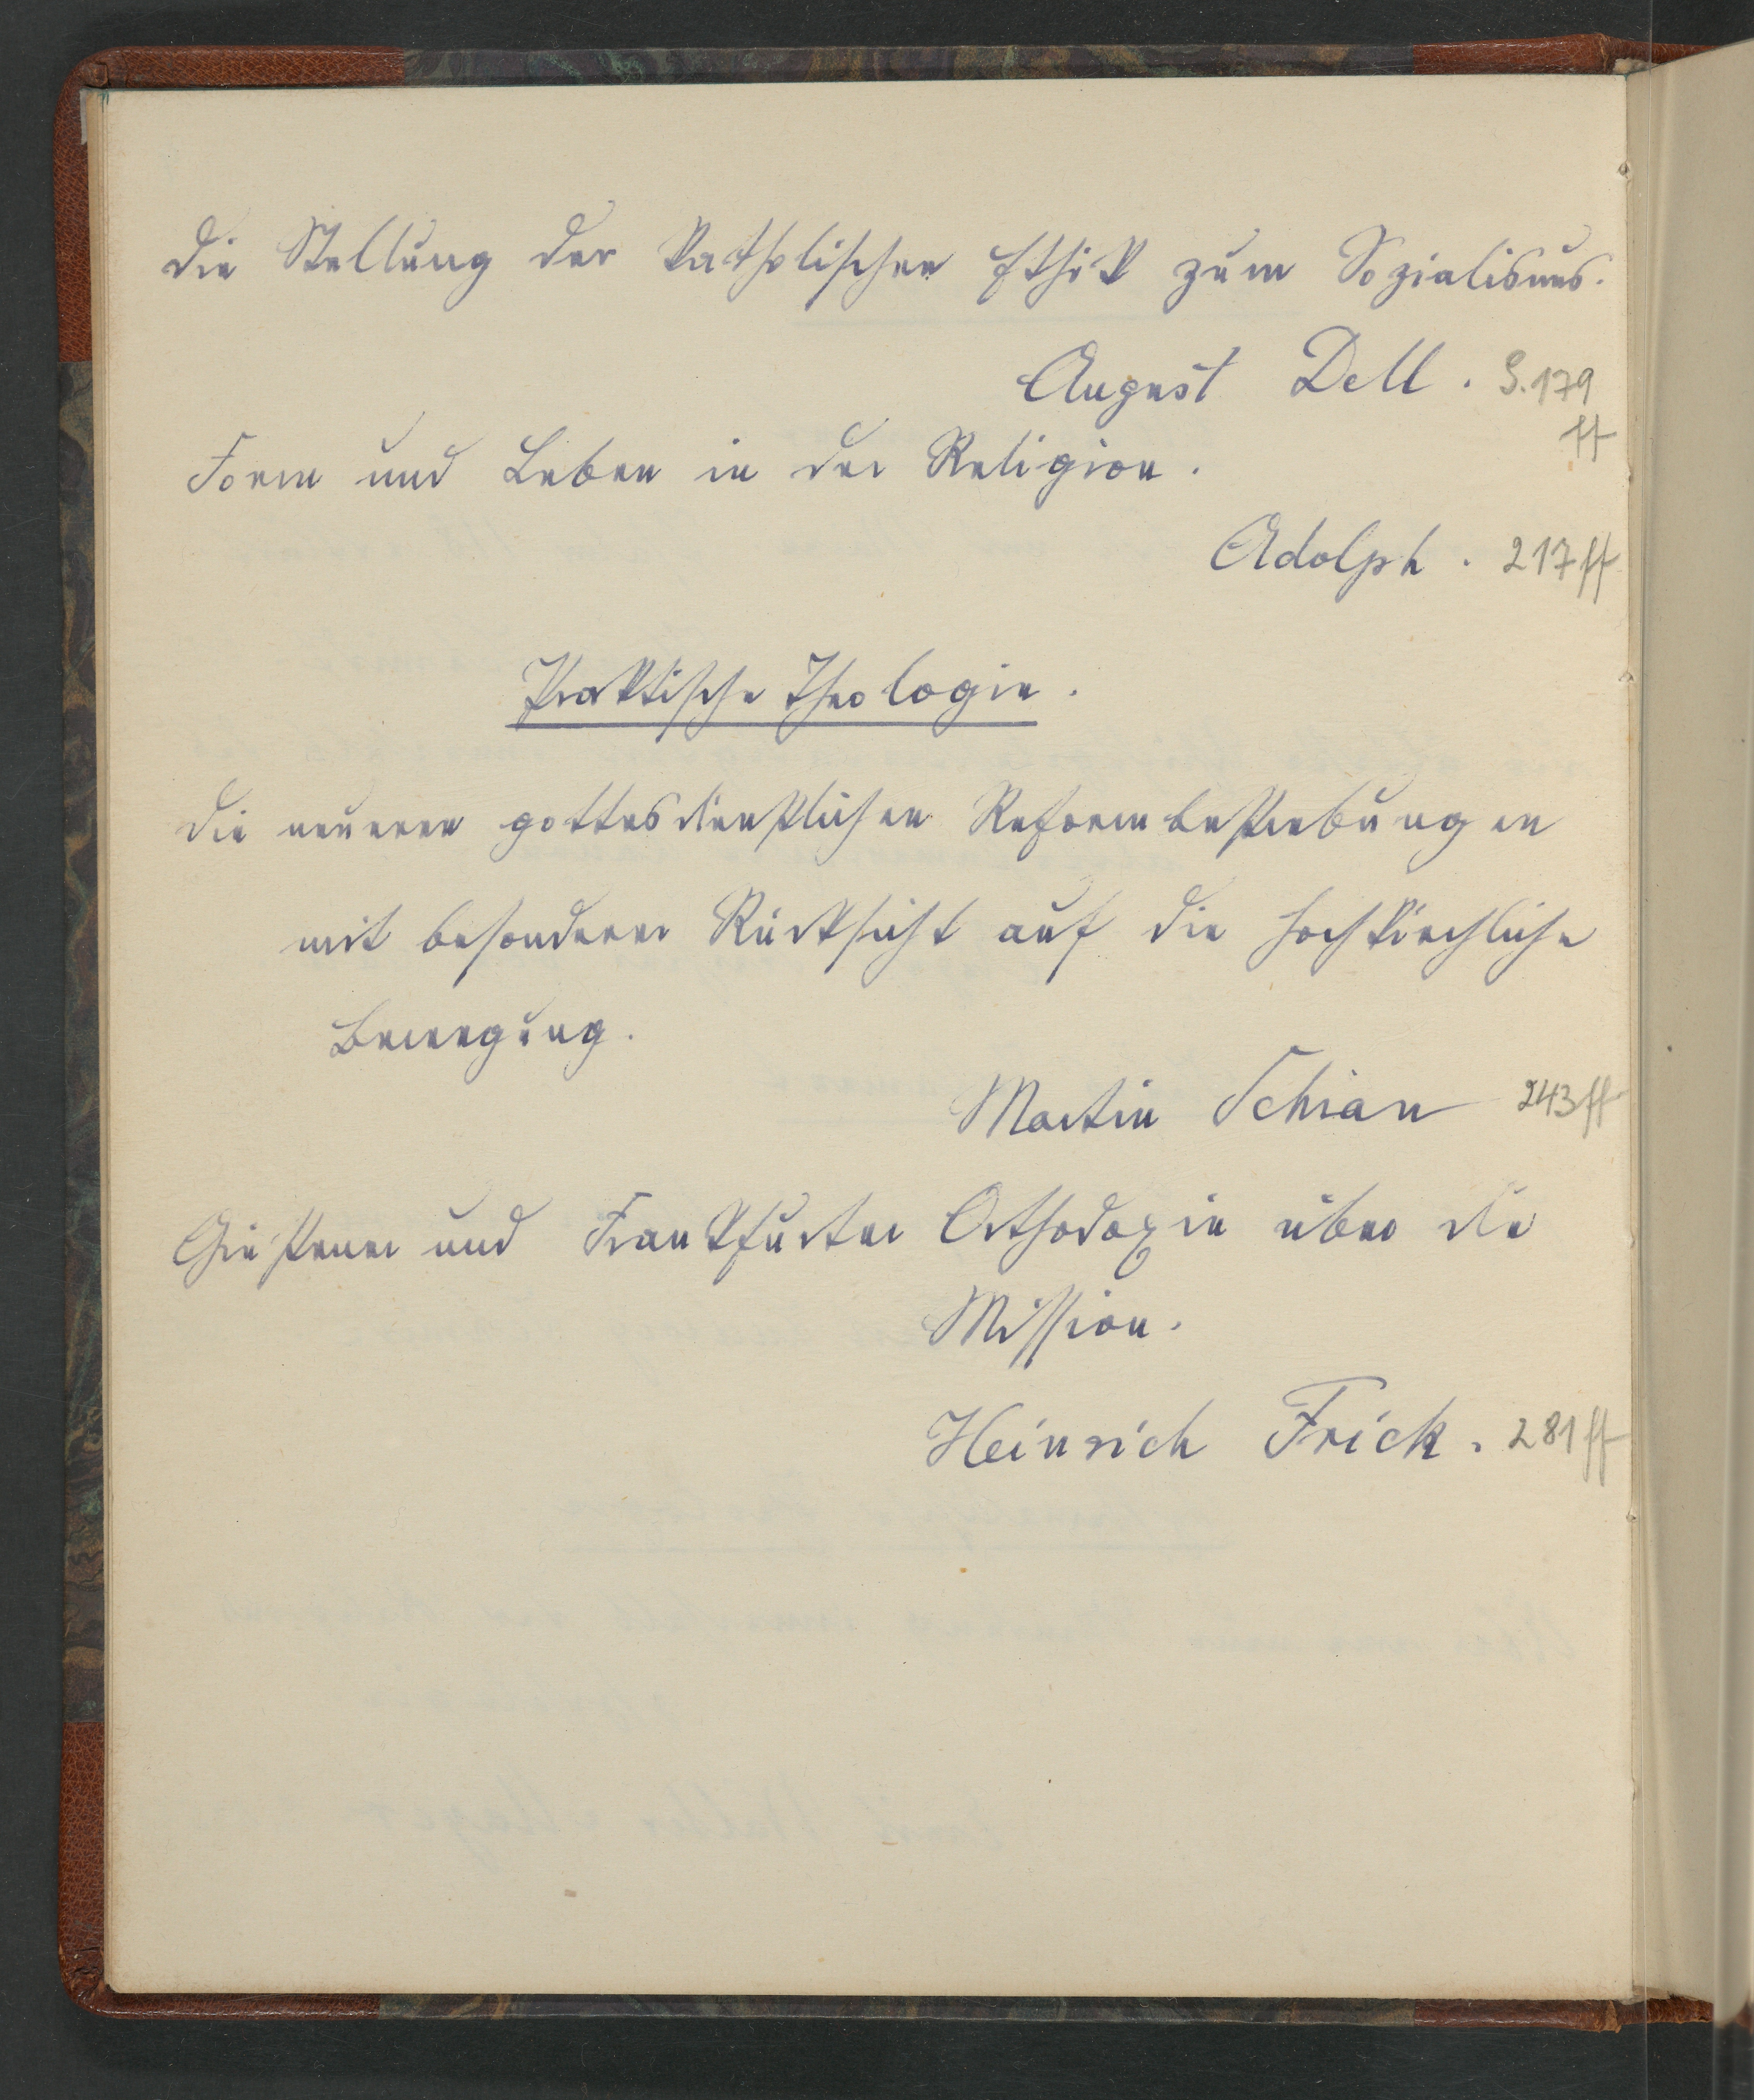 Die Stellung der katholischen Ethik zum Sozialismus.
August Dell. S. 179
ff
Form und Leben in der Religion.
Adolph. 217 ff
Praktische Theologie.
Die neueren gottesdienstlichen Reformbestrebungen
mit besonderer Rücksicht auf die hochkirchliche
Bewegung.
Martin Schian 243 ff
Gießener und Frankfurter Orthodoxie über die
Mission.
Heinrich Frick. 281 ff